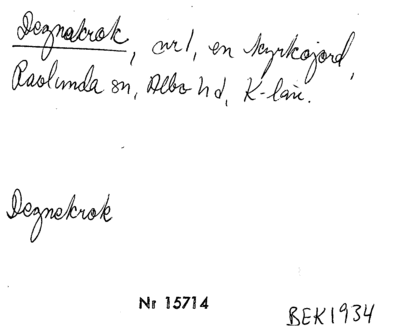 Degnakrok, url, en kyrkojord,
Ravlunda sn, Albo hd, K-län.
Degnekrok
Nr 15714
BEK1934